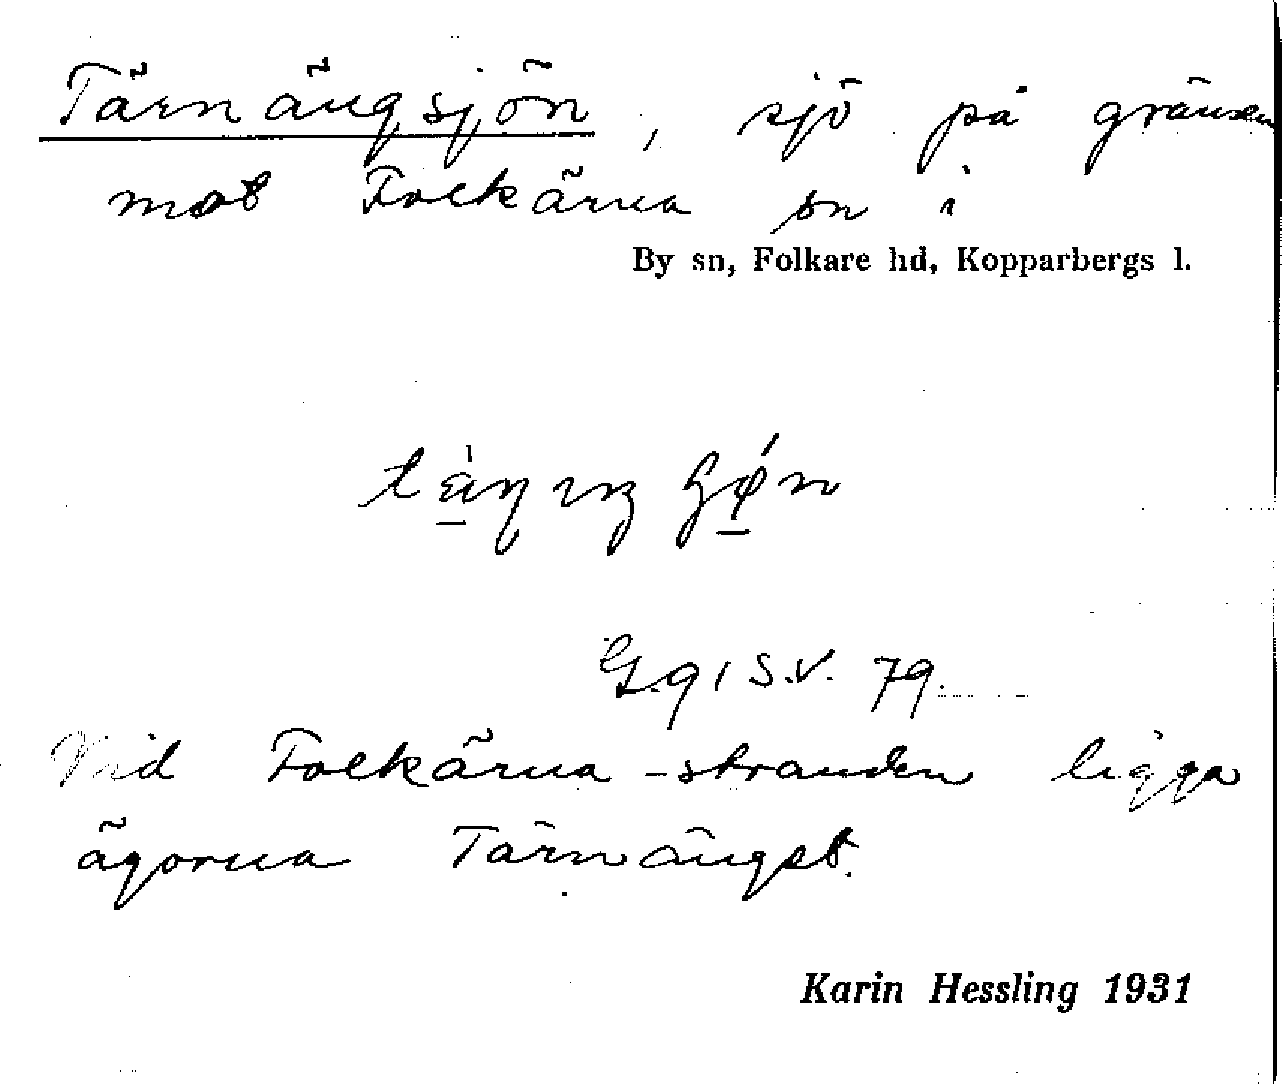 Tärnängsjön, sjö på gränsen
mot Folkärna sn i
By sn, Folkare hd, Kopparbergs l.
G.91 S.V. 79.
Vid Folkärna-stranden ligga
ägorna Tärnänget.
Karin Hessling 1931